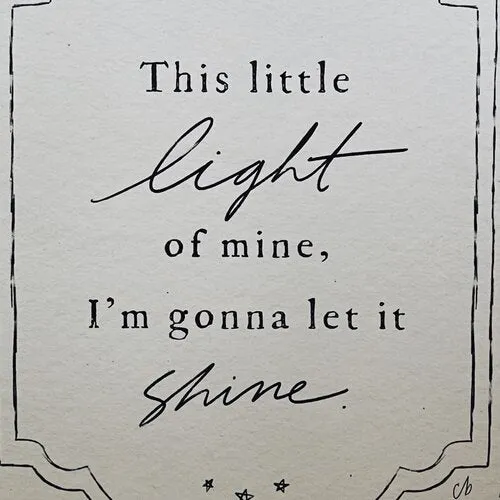 This little
light
of mine,
I'm gonna let it
shine.
cb